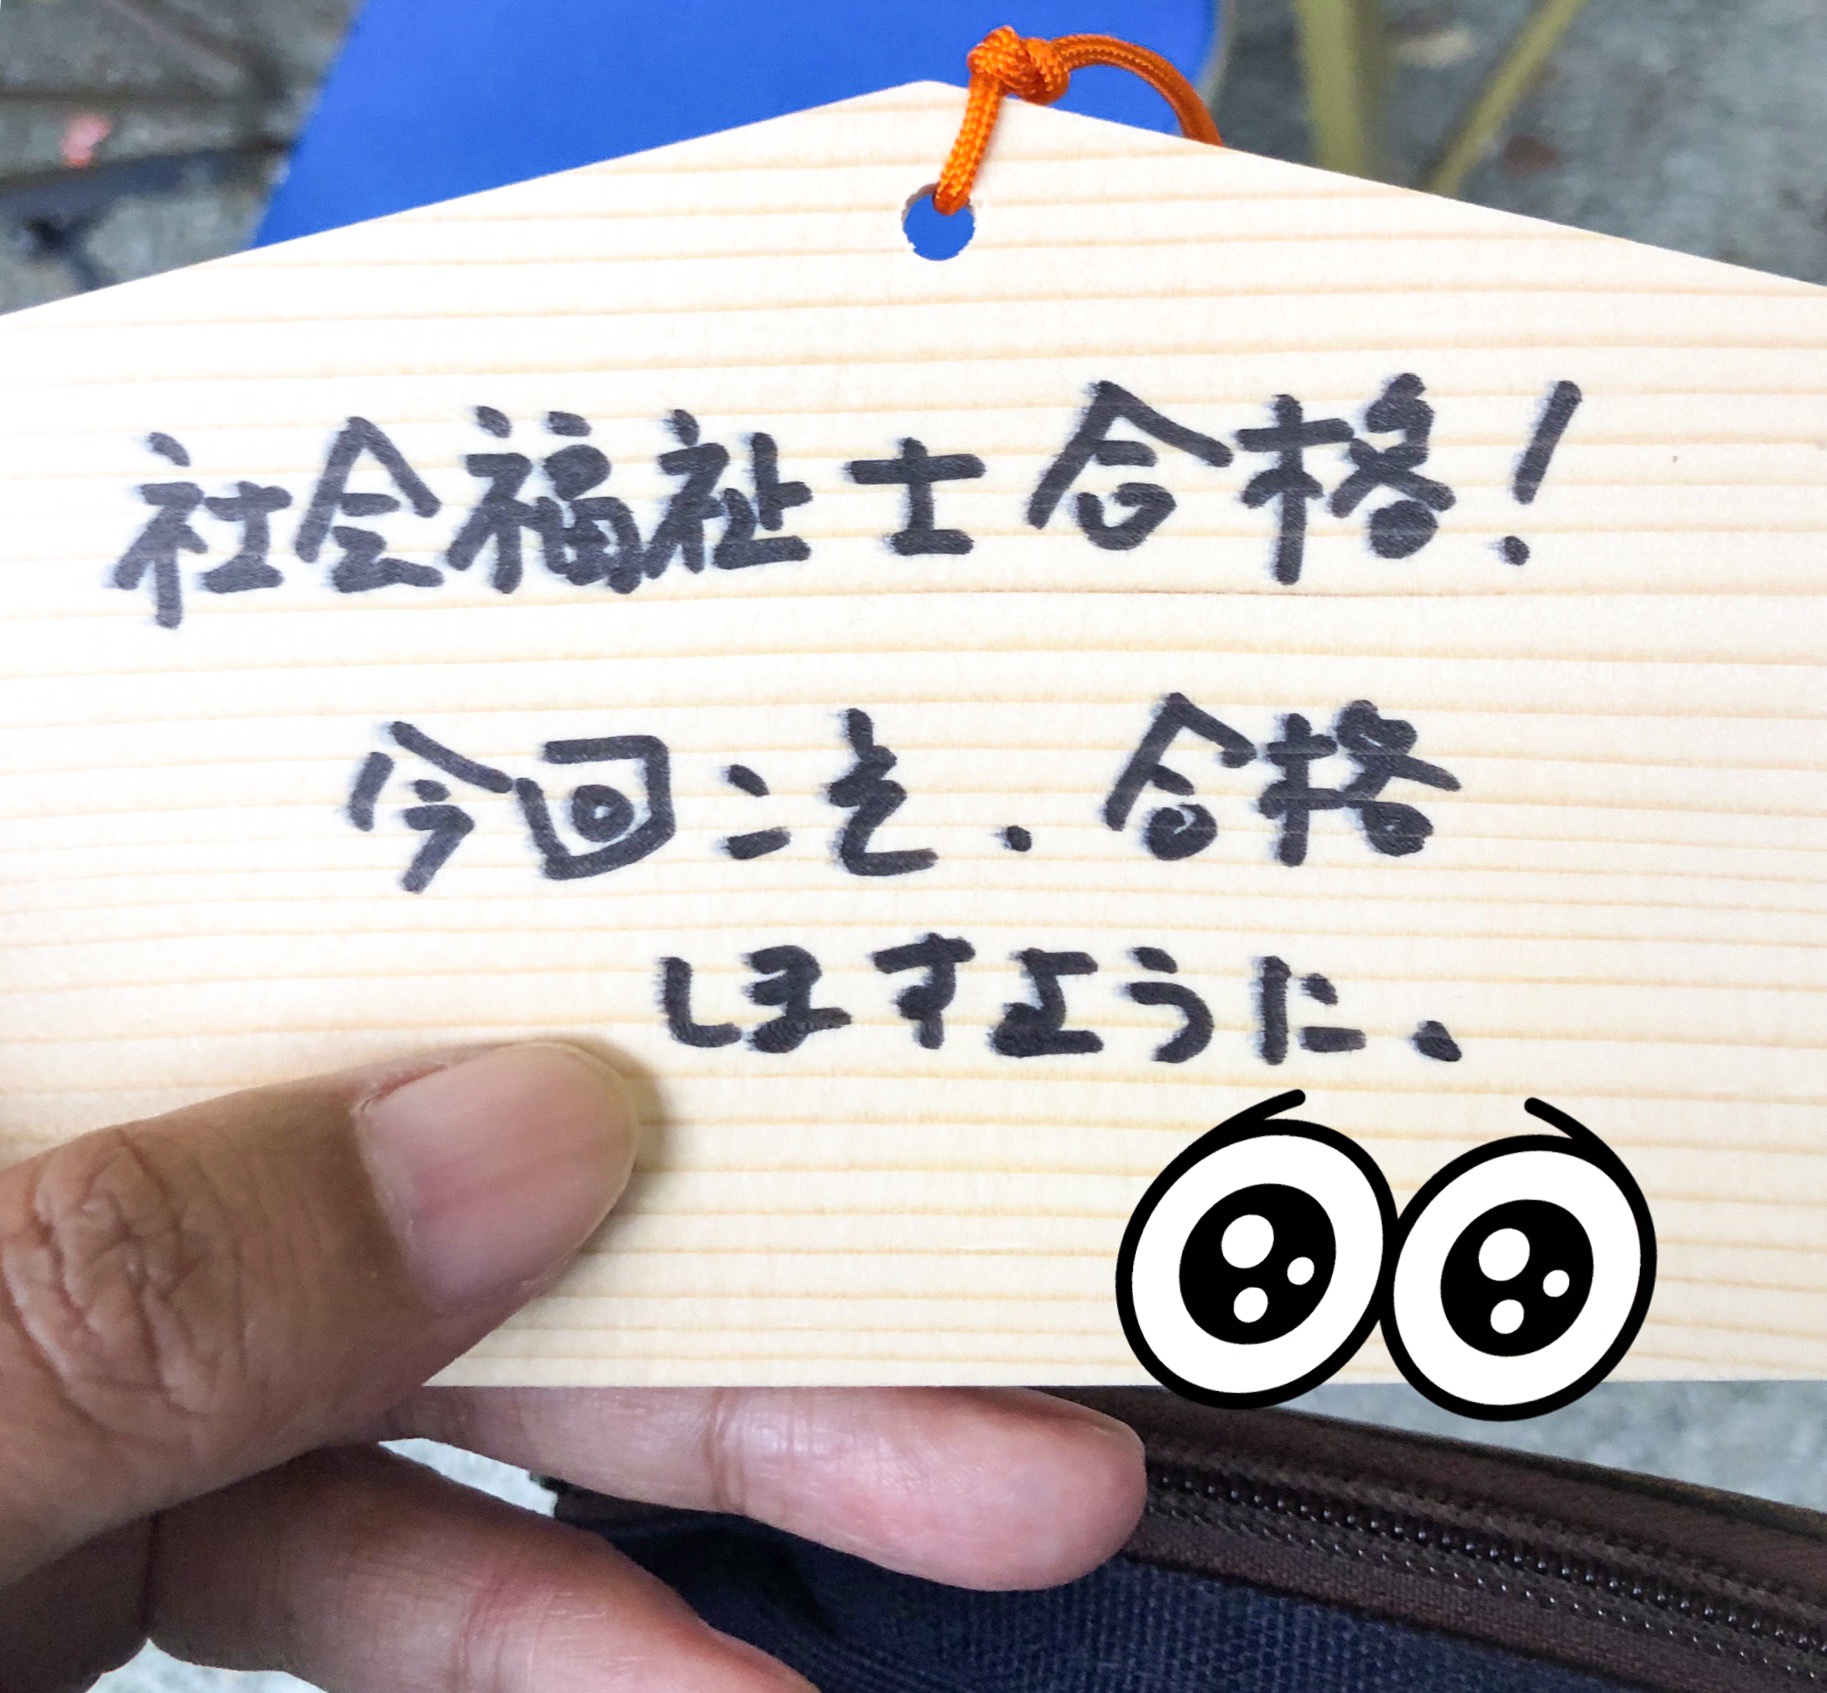 社会福祉士合格!
今回こそ、合格
しますように、